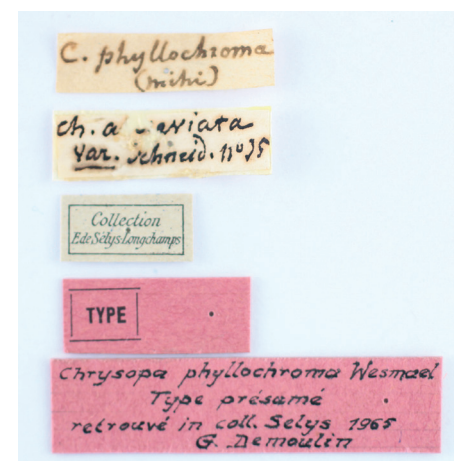 C. phyllochroma
(mihi)
Ch. a
var. Schneid. n°35
Collection
E de Sélys Longchamps
TYPE
Chrysopa phyllochroma Wesmael
Type présumé
retrouvé in coll. Selys 1965
G. Demoulin